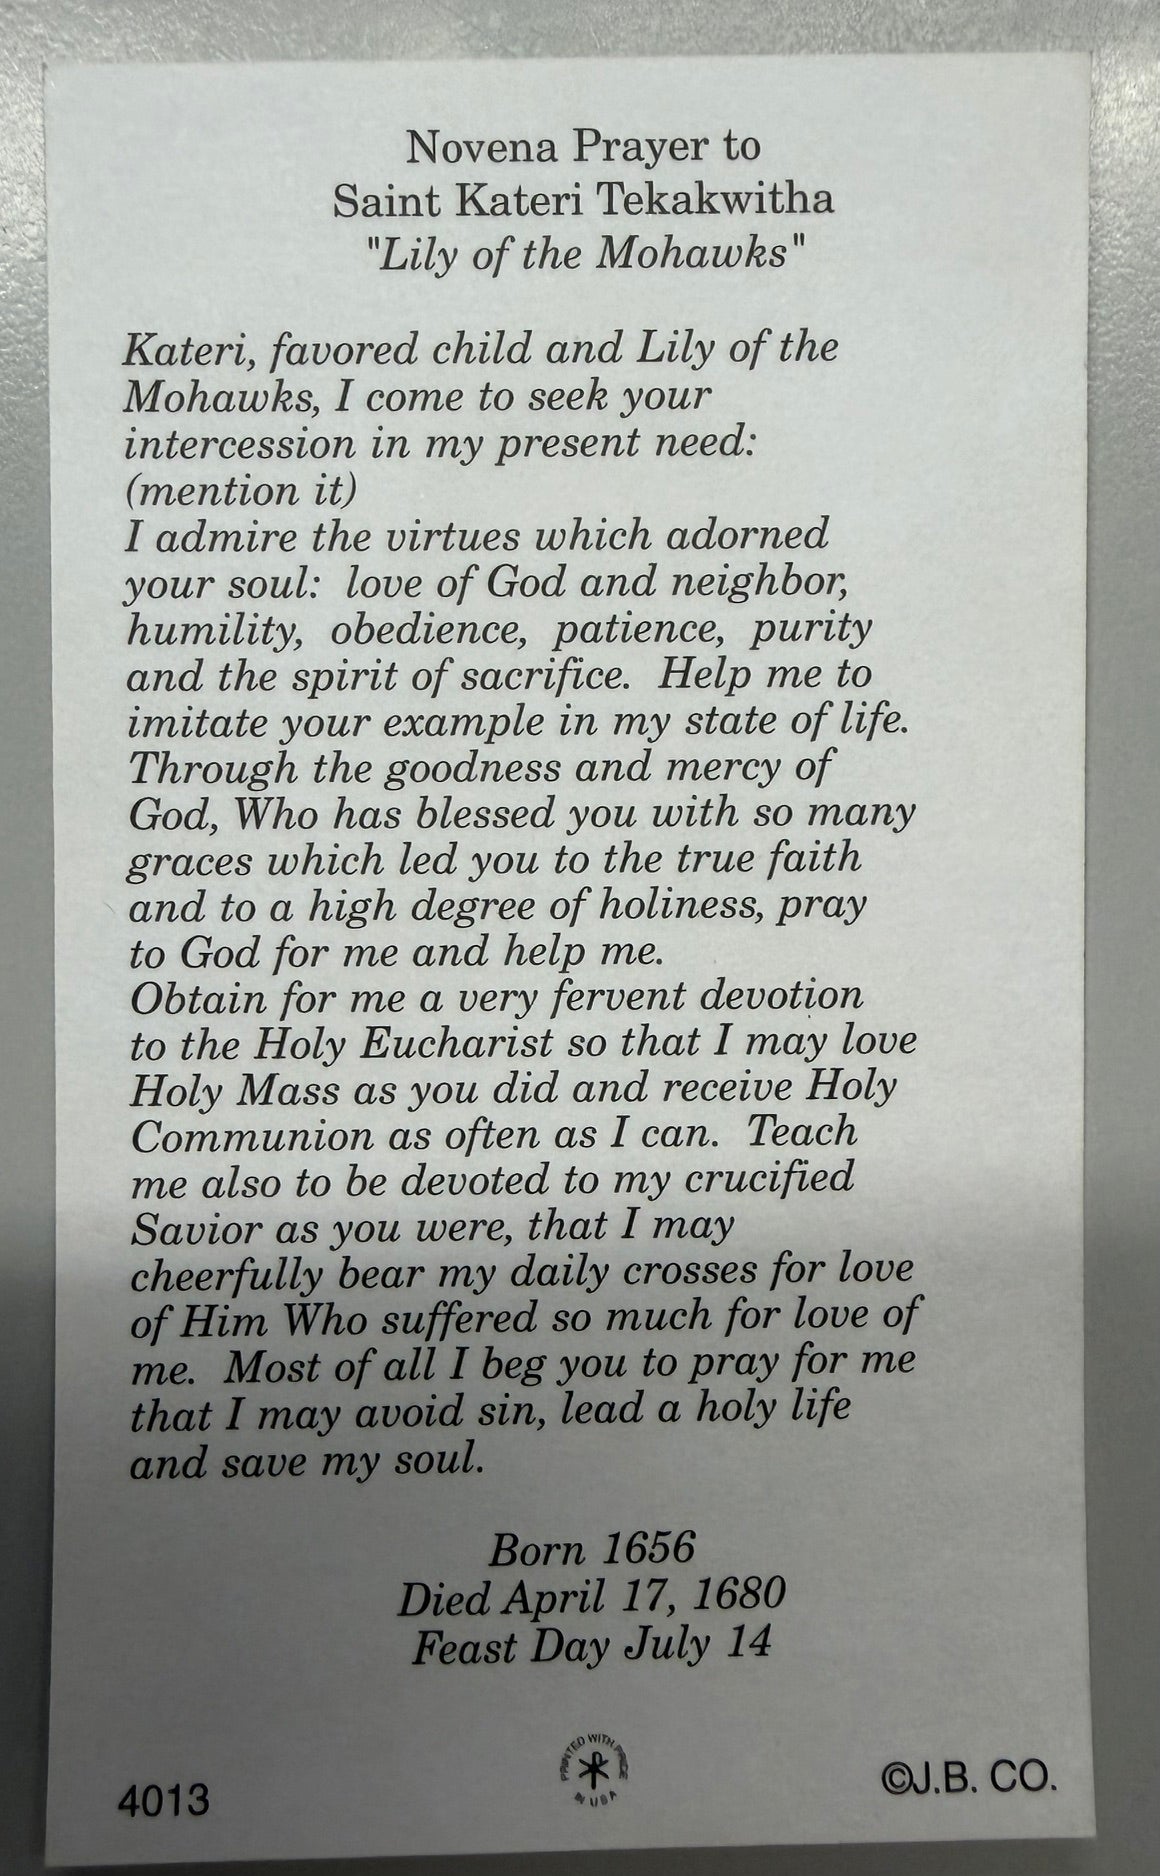 Novena Prayer to
Saint Kateri Tekakwitha
"Lily of the Mohawks"
Kateri, favored child and Lily of the
Mohawks, I come to seek your
intercession in my present need:
(mention it)
I admire the virtues which adorned
your soul:  love of God and neighbor,
humility,  obedience,  patience,  purity
and the spirit of sacrifice.  Help me to
imitate your example in my state of life.
Through the goodness and mercy of
God, Who has blessed you with so many
graces which led you to the true faith
and to a high degree of holiness, pray
to God for me and help me.
Obtain for me a very fervent devotion
to the Holy Eucharist so that I may love
Holy Mass as you did and receive Holy
Communion as often as I can.  Teach
me also to be devoted to my crucified
Savior as you were, that I may
cheerfully bear my daily crosses for love
of Him Who suffered so much for love of
me.  Most of all I beg you to pray for me
that I may avoid sin, lead a holy life
and save my soul.
Born 1656
Died April 17, 1680
Feast Day July 14
PRINTED WITH PRIDE
IN USA
4013
©J.B. CO.